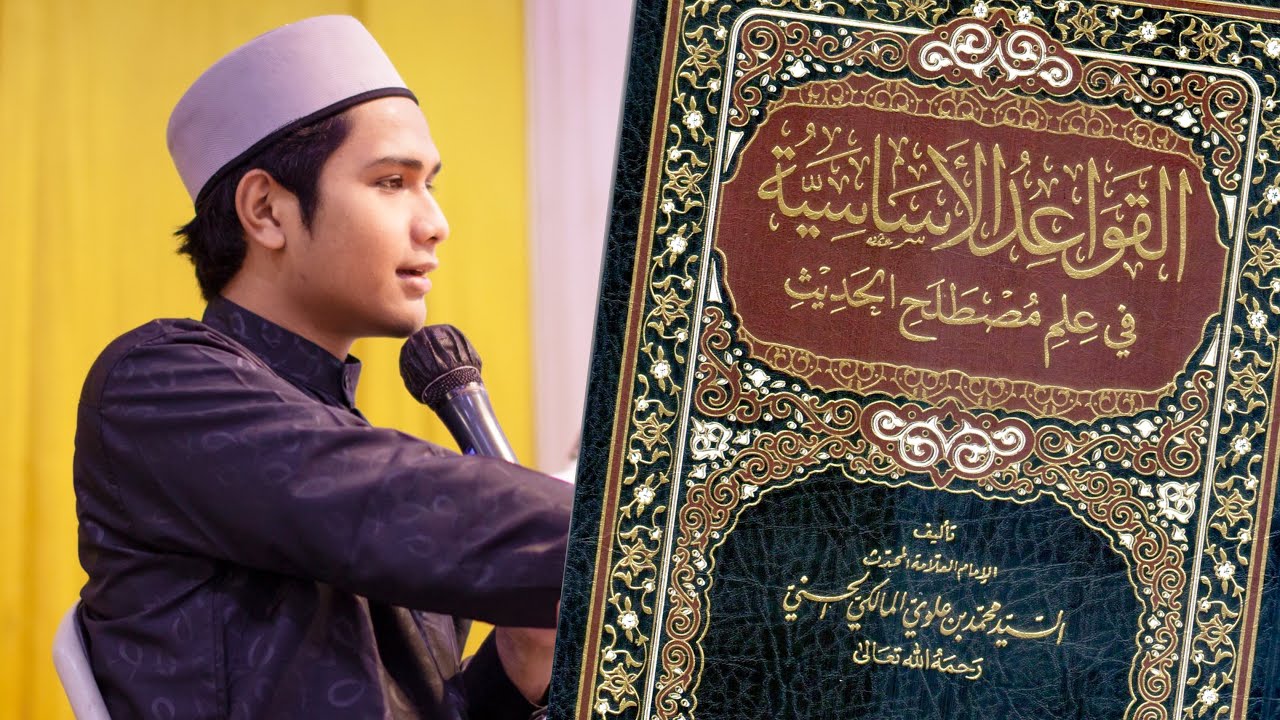 القَوَاعِدُ الأَسَاسِيَّةُ
في عِلمِ مُصْطَلَحِ الحَدِيْثِ
تأليف
الإمام العلامة المحدث
السيد محمد بن علوي المالكي الحسني
رَحِمَهُ اللهُ تَعَالىٰ